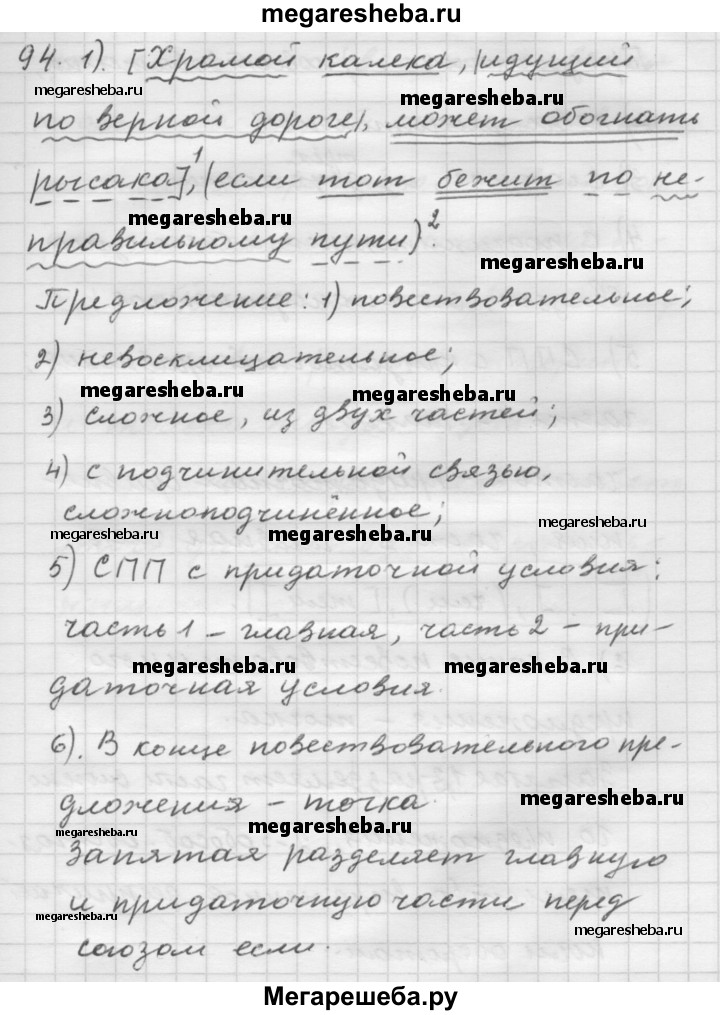 megaresheba.ru
94. 1). [Храмой калека, |идущий
megaresheba.ru
megaresheba.ru
по верной дороге|, может обогнать
рысака]¹, (если тот бежит по не-
megaresheba.ru
правильному пути)².
megaresheba.ru
Предложение: 1) повествовательное;
2) невосклицательное;
megaresheba.ru
megaresheba.ru
3) сложное, из двух частей;
4) с подчинительной связью,
сложноподчинённое;
megaresheba.ru
megaresheba.ru
5) СПП с придаточной условия:
часть 1 – главная, часть 2 – при-
megaresheba.ru
megaresheba.ru
даточная условия.
6). В конце повествовательного пре-
дложения – точка.
megaresheba.ru
megaresheba.ru
megaresheba.ru
Запятая разделяет главную
и придаточную части перед
megaresheba.ru
megaresheba.ru
союзом если.
Мегарешеба.ру